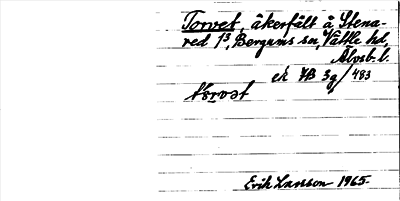 Torvet, åkerfält å Stena-
red 1³, Bergums sn, Vättle hd,
Älvsb. l.
ek 7B 3g/483
Erik Larsson 1965.